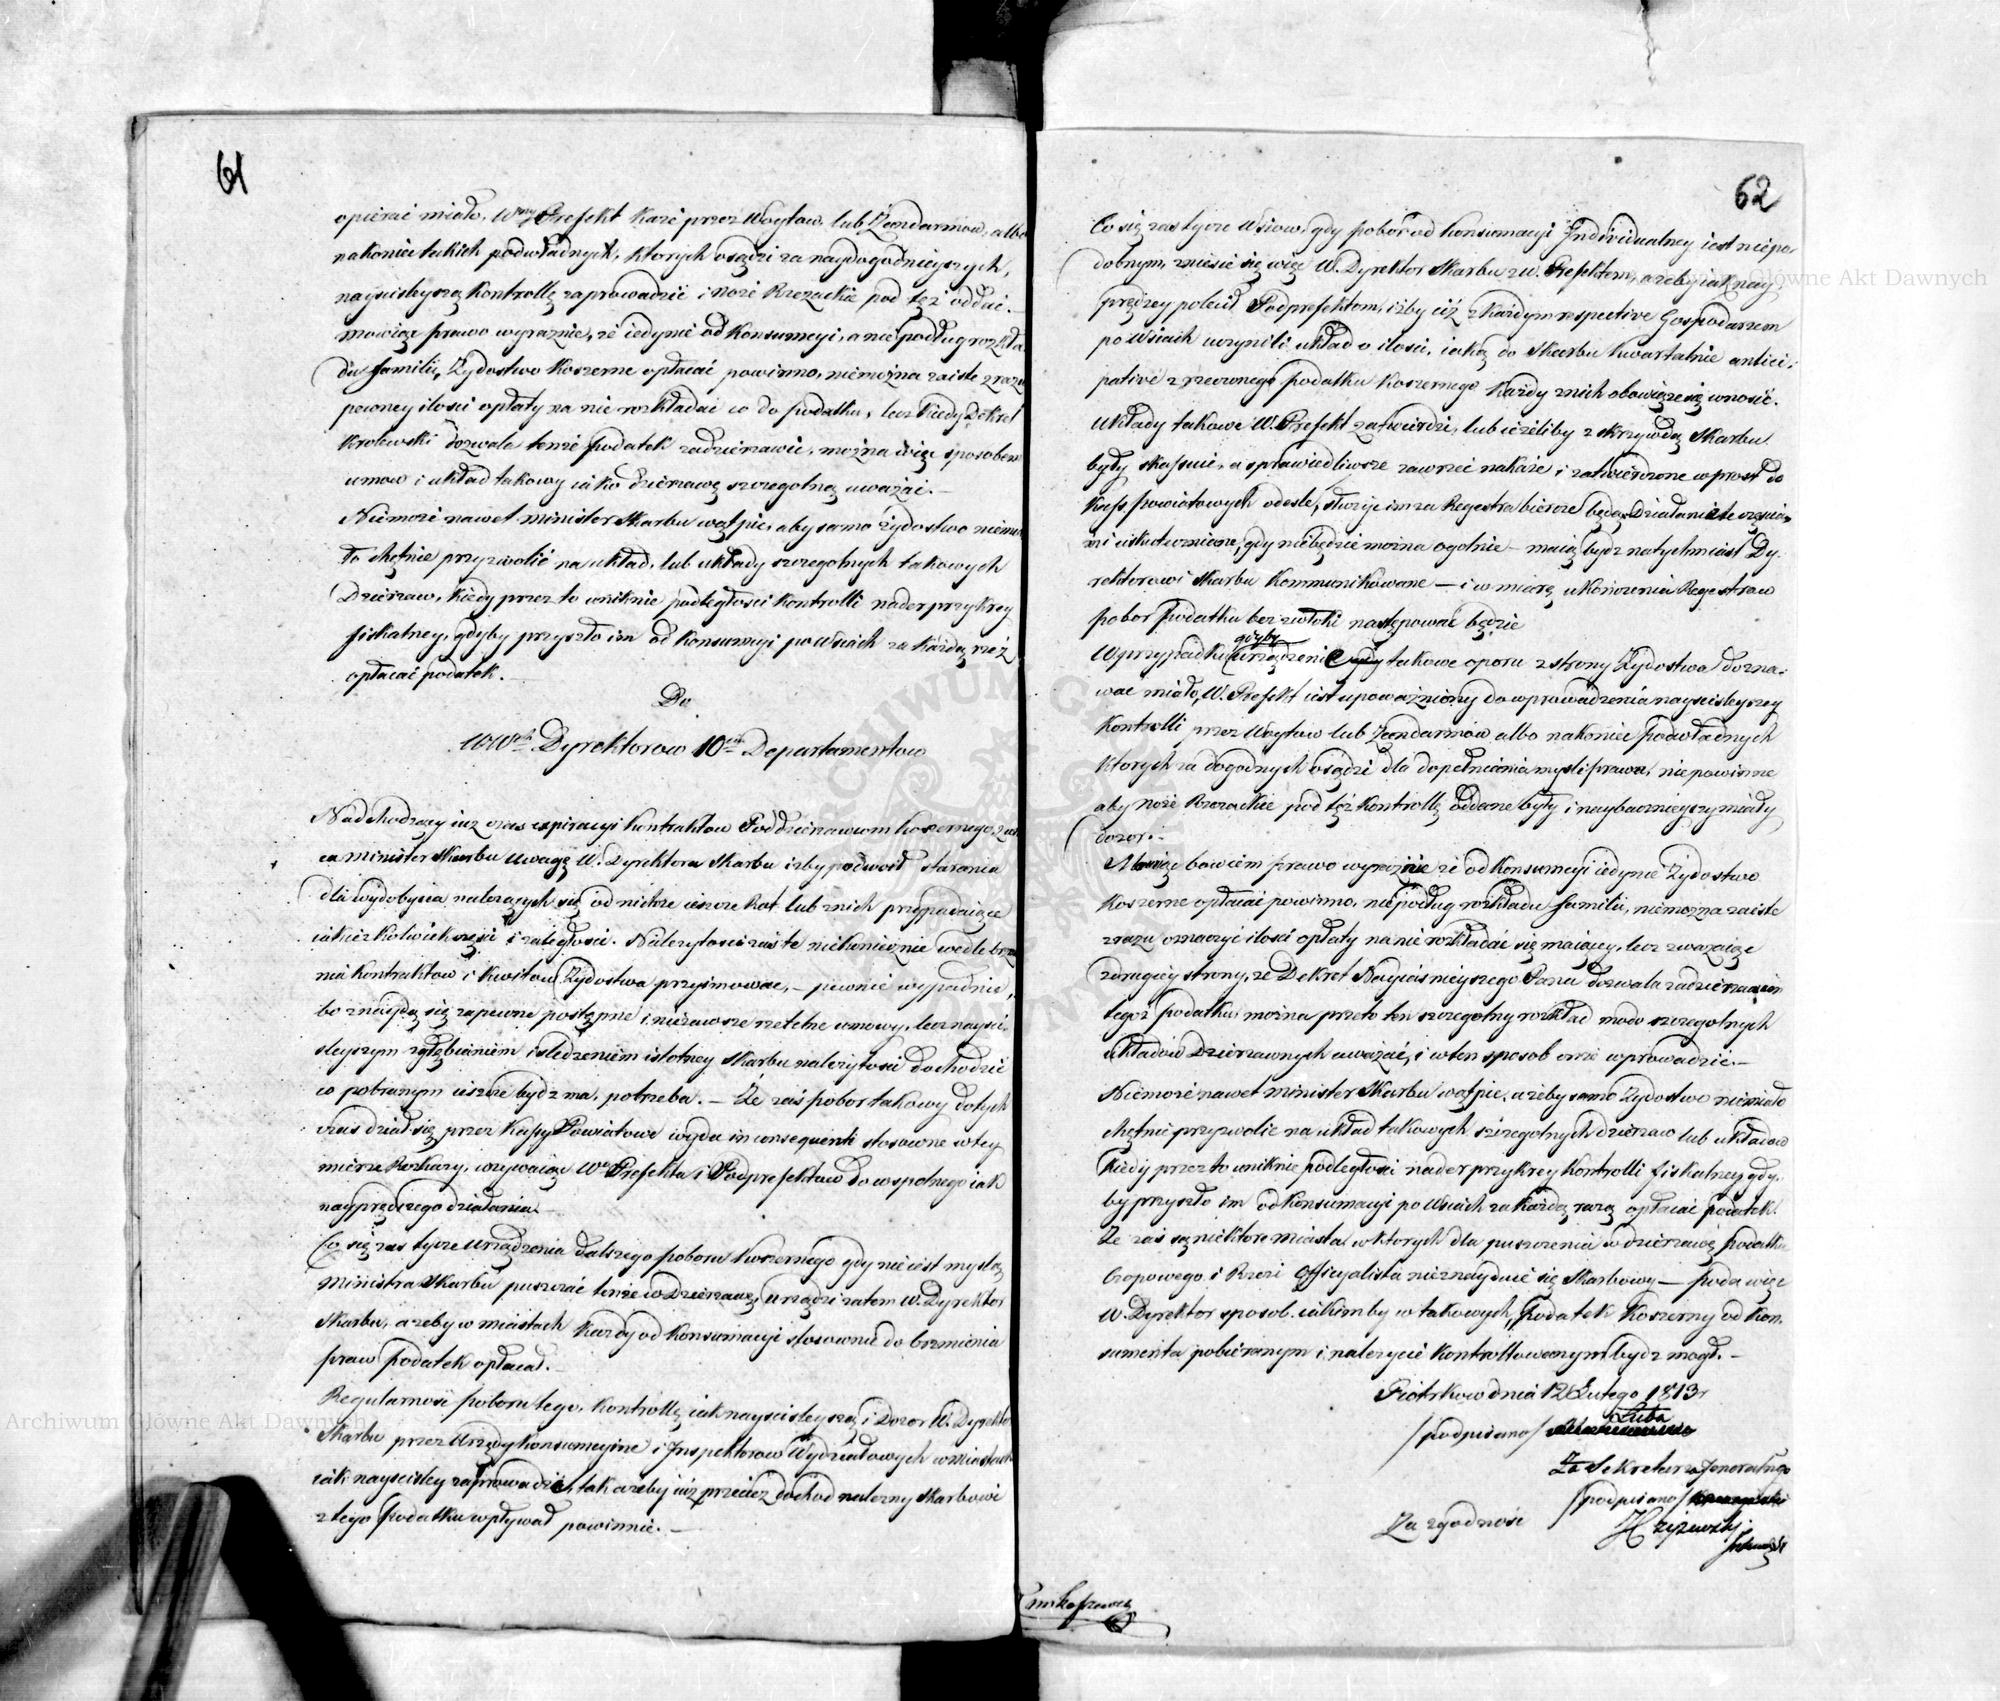 61
opierać miało, Wny Prefekt każe przez Woytow, lub Żandarmow, albo
nakoniec takich podwładnych, ktorych osądzi za naydogodnieyszych,
nayściśleyszą Kontrollę zaprowadzić i noże Rzezackie pod tęż oddać.
mowiąc prawo wyraźnie, że iedynie od Konsumcyi, a nie podług rozkła
du familii, Żydostwo Koszerne opłacać powinno, niemożna zaiste zrazu
pewney ilości opłaty na nie rozkładać co do podatku, lecz kiedy Dekret
Krolewski dozwala tenże podatek zadzierzawić, można więc sposobem
umow i układ takowy iako dzierzawę szczegolną uważać. —
Niemoże nawet Minister Skarbu wątpić, aby samo żydostwo niemia
ło chętnie przyzwolić na układ, lub układy szczegolnych takowych
Dzierzaw, kiedy przez to uniknie podległości Kontrolli nader przykrey
fiskalney, gdyby przyszło im od Konsumcyi po Wsiach za każdą rzeź
opłacać podatek. —
Do
WWch Dyrektorow 10ciu Departamentow
Nadchodzący iuż czas expiracyi Kontraktow Poddzierzawcom koszernego, zwra
ca Minister Skarbu uwagę W. Dyrektora Skarbu iżby podwoił starania
dla wydobycia należących się od nichże ieszcze Rat lub z nich przypadaiące
iakieżkolwiek części i zaległości. Należytości zaś te niekoniecznie wedle brzmie
nia Kontraktow i Kwitow Żydostwa przyimować, — pewnie wypadnie,
bo znaydą się zapewne postępne i niezawsze rzetelne umowy, lecz nayści
śleyszym zgłębianiem i śledzeniem istotney Skarbu należytości dochodzić
co pobranym ieszcze bydź ma, potrzeba. — Że zaś pobor takowy dotych
czas działsię przez Kassy Powiatowe wyda in consequenti stosowne w tey
mierze Rozkazy, wzywaiąc We Prefekta i Podprefektow do wspolnego iak
nayprędszego działania. —
Co się zaś tycze urządzenia dalszego poboru koszernego gdy nie iest myślą
Ministra Skarbu puszczać tenże w Dzierzawę, urządzi zatem W. Dyrektor
Skarbu, ażeby w miastach każdy od Konsumacyi stosownie do brzmienia
praw podatek opłacał. —
Regularność poboru tego, Kontrollę iak nayściśleyszą i Dozor W. Dyrektor
Skarbu przez Urzędy Konsumcyine i Inspektorow Wydziałowych w miastach
iak nayściśley zaprowadzi, tak ażeby iuż przecież dochod należny Skarbowi
z tego podatku wpływał powinnie. —
62
Co się zas tycze Wsiow, gdy pobor od Konsumacyi Individualney iest niepo
dobnym, zniesie się więc W. Dyrektor Skarbu z W. Prefektem, ażeby iak nay
prędzey polecił Podprefektom, iżby ciż z każdym respective Gospodarzem
po Wsiach uczynili układ o ilości, iaką do Skarbu kwartalnie antici,
pative z rzeczonego podatku Koszernego każdy z nich obowiąże się wnosić.
Układy takowe W. Prefekt zatwierdzi, lub ieżeliby z skrzywdą Skarbu
były skassuie, a sprawiedliwsze zawrzeć nakaże i zatwierdzone wprost do
Kass powiatowych odeśle, służyć im za Regestra biercze będą. Działanie te częścia
mi uskutecznione, gdy niebędzie można ogolnie — maią bydź natychmiast Dy
rektorowi Skarbu Kommunikowane — i w miarę ukończenia Regestrow
pobor Podatku bez zwłoki następować będzie
gdyby
W przypadku urządzenie takowe oporu z strony Żydostwa dozna
wać miało, W. Prefekt iest upoważniony do wprowadzenia nayściśleyszey
Kontrolli przez Woytow lub Żandarmow albo nakoniec podwładnych
ktorych za dogodnych osądzi dla dopełniania myśli prawa, niepowinne
aby noże Rzezackie pod tęż Kontrollę oddane były i naybacznieyszy miały
dozor. —
Mowiąc bowiem prawo wyraźnie że od Konsumcyi iedynie Żydostwo
Koszerne opłacać powinno, nie podług rozkładu familii, niemożna zaiste
zrazu oznaczyć ilości opłaty na nie rozkładać się maiącey, lecz zważaiąc
z drugiey strony, że Dekret Nayiaśnieyszego Pana dozwala zadzierzawien
tegoż podatku, można przeto ten szczegolny rozkład modo szczegolnych
układow Dzierzawnych uważać, i w ten sposob one wprowadzić. —
Niemoże nawet Minister Skarbu wątpić, ażeby samo Żydostwo niemiało
chętnie przyzwolić na układ takowych szczegolnych dzierzaw lub układow
kiedy przez to uniknie podległości nader przykrey Kontrolli fiskalney gdy
by przyszło im od Konsumacyi po Wsiach za każdą razą opłacać podatek.
Że zaś są niektore miasta w ktorych dla puszczenia w dzierzawę podatku
Czopowego i Rzezi Officyalista nieznayduie się Skarbowy — poda więc
W. Dyrektor sposob iakimby w takowych, Podatek Koszerny od Kon
sumenta pobieranym i należycie Kontrollowanym bydź mogł. —
Piotrkow dnia 12 Lutego 1813r
Łuba
/podpisano/
Za Sekretarza Jeneralnego
/podpisano/
Za zgodność